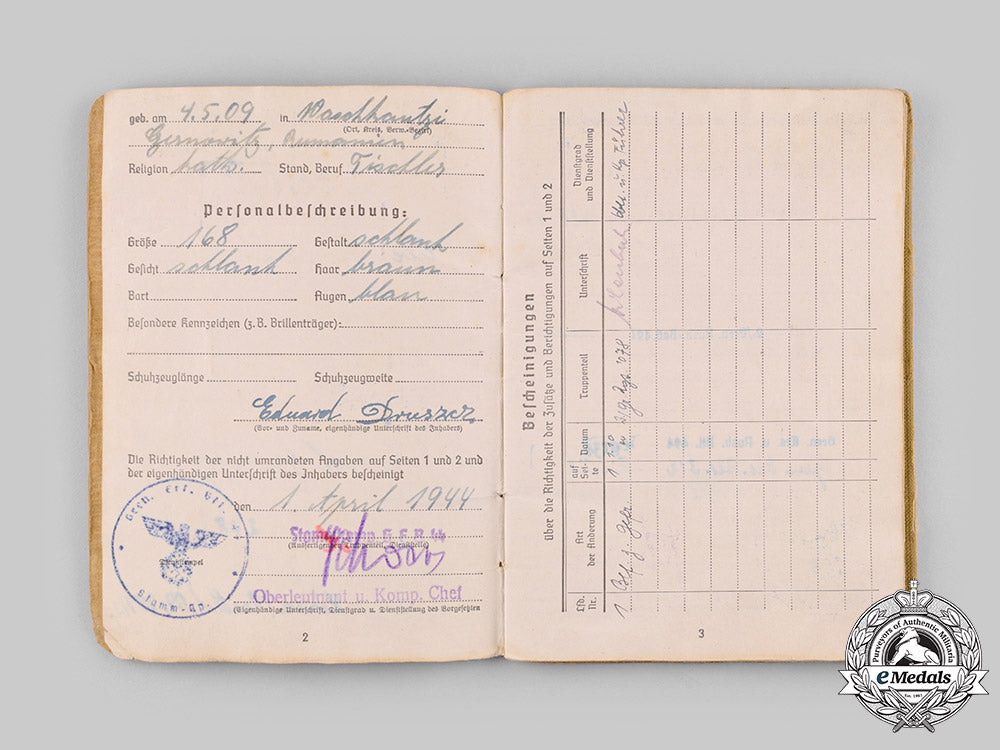 geb. am 4.5.09 in Waschkautzi
(Ort, Kreis, Verw.-Bezirk)
Cernowitz, Rumänien
Religion kath. Stand, Beruf Tischler
Personalbeschreibung:
Größe 168 Gestalt schlank
Gesicht schlank Haar braun
Bart Augen blau
Besondere Kennzeichen (z.B. Brillenträger):
Schuhzeuglänge Schuhzeugweite
Eduard Druszez
(Vor- und Zuname, eigenhändige Unterschrift des Inhabers)
Die Richtigkeit der nicht umrandeten Angaben auf Seiten 1 und 2 und
der eigenhändigen Unterschrift des Inhabers bescheinigt
den 1. April 1944
Gren. Ers. Btl. 44
Stamm-Kp.
Dienststempel
Stammkomp. G.E.B. 44
(Ausfertigender Truppenteil, Dienststelle)
Oberleutnant u. Komp. Chef
(Eigenhändige Unterschrift, Dienstgrad u. Dienststellung des Vorgesetzten)
2
Bescheinigungen
über die Richtigkeit der Zusätze und Berichtigungen auf Seiten 1 und 2
Lfd. Nr.
Art der Änderung
auf Seite
Datum
Truppenteil
Unterschrift
Dienstgrad und Dienststellung
1 Bef. z. Gefr. 1
3
Purveyors of Authentic Militaria
eMedals
Est. 1967